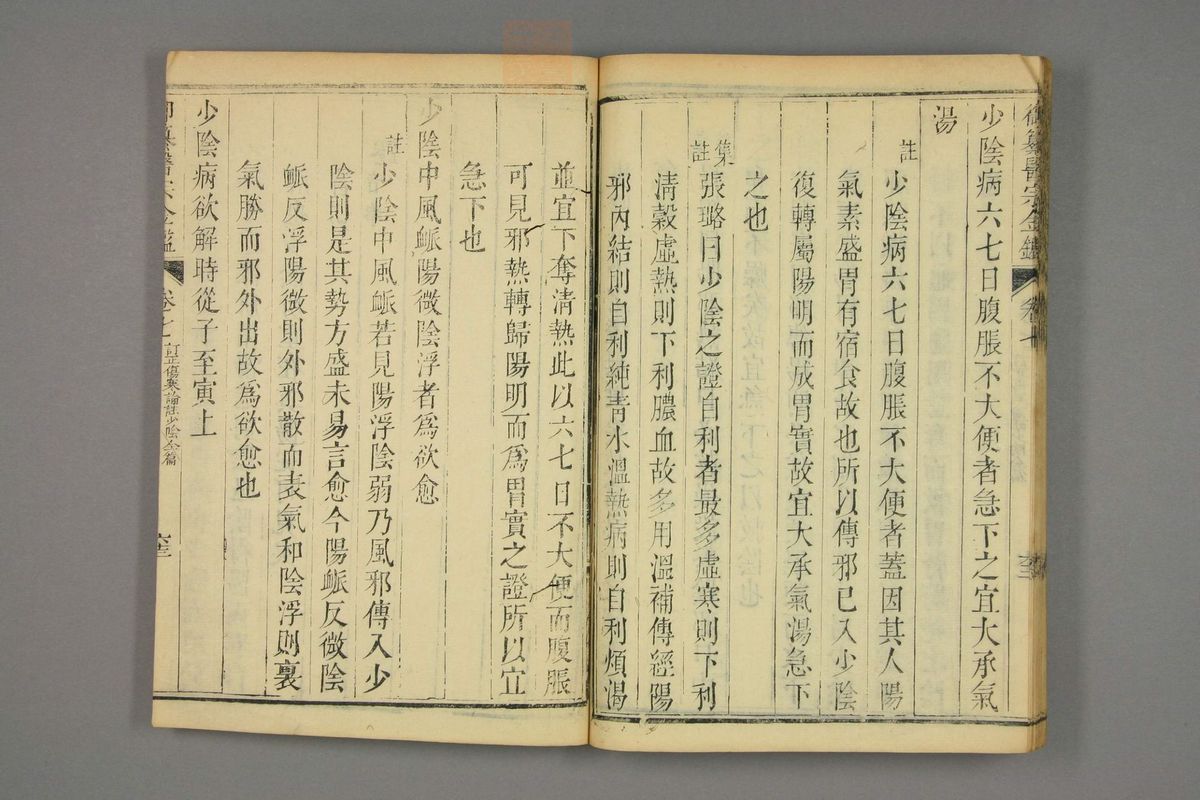 御纂醫宗金鑑 卷七
少陰病六七日腹脹不大便者急下之宜大承氣
湯
註 少陰病六七日腹脹不大便者蓋因其人陽
氣素盛胃有宿食故也所以傳邪已入少陰
復轉屬陽明而成胃實故宜大承氣湯急下
之也
集註 張璐曰少陰之證自利者最多虛寒則下利
清穀虛熱則下利膿血故多用溫補傳經陽
邪內結則自利純青水溫熱病則自利煩渴
並宜下奪清熱此以六七日不大便而腹脹
可見邪熱轉歸陽明而為胃實之證所以宜
急下也
少陰中風䘑陽微陰浮者為欲愈
註 少陰中風䘑若見陽浮陰弱乃風邪傳入少
陰則是其勢方盛未易言愈今陽䘑反微陰
䘑反浮陽微則外邪散而表氣和陰浮則裏
氣勝而邪外出故為欲愈也
少陰病欲解時從子至寅上
御纂醫宗金鑑 卷七 訂正傷寒論註少陰全篇 六三